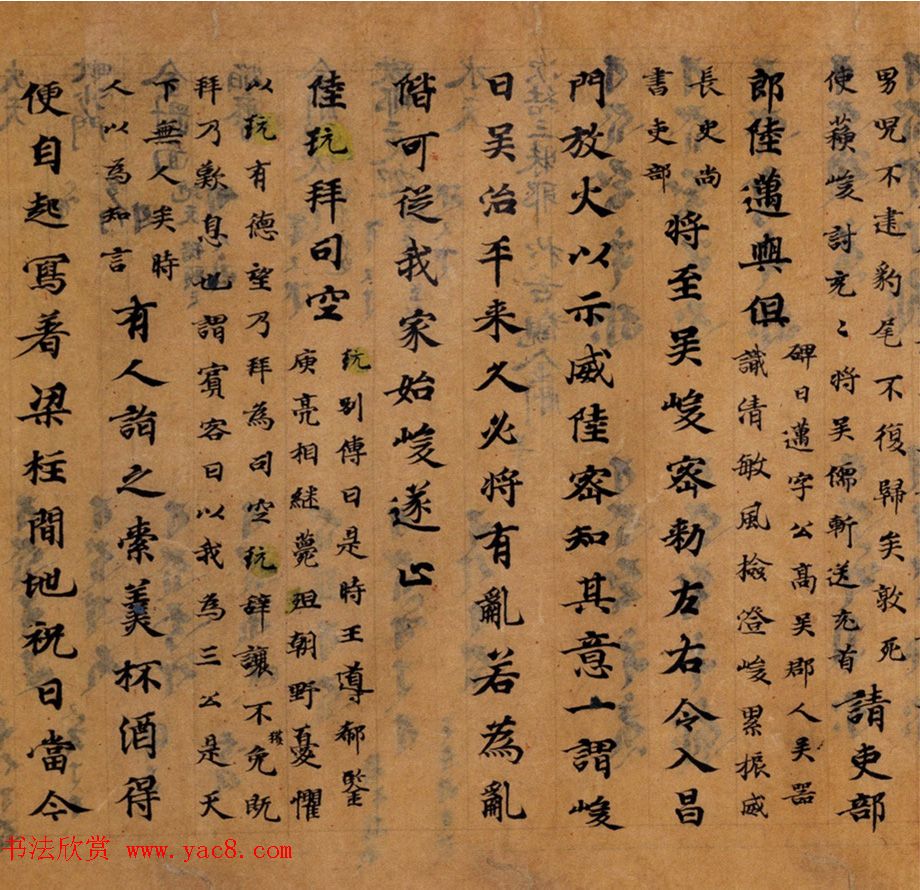 男兒不建豹尾不復歸矣敦死
使蘓峻討充〻將吳儒斬送充首
請吏部
郎陸邁與俱
碑曰邁字公高吳郡人吳器
識清敏風撿澄峻累振威
長史尚
書吏部
將至吴峻密勑左右令入昌
門放火以示威陸密知其意謂峻
曰吴治平来久必將有亂若為亂
偕可從我家始峻遂止
陸玩拜司空
玩別傳曰是時王導郗鑒
庾亮相継薨殂朝野憂懼
以玩有德望乃拜為司空玩辞讓不獲免既
拜乃歎息也謂賓客曰以我為三公是天
下無人矣時
人以為知言
有人詣之索羹杯酒得
便自起寫著梁柱間地祝曰當令
书法欣赏 www.yac8.com